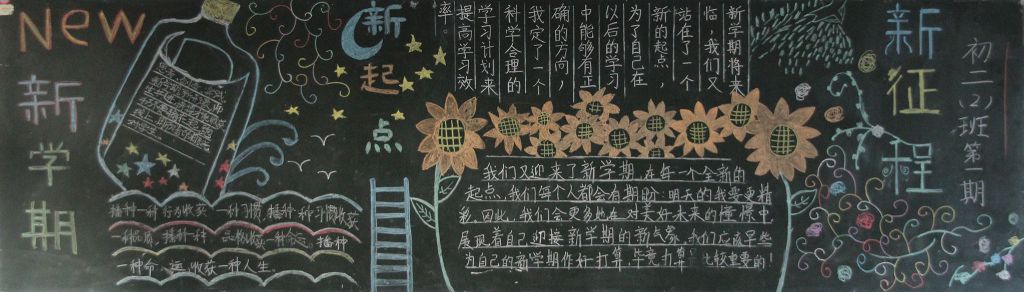 New
新学期
播种一种行为收获一种习惯，播种一种习惯收获
一种性格，播种一种
收获一种命运，播种
一种命运，收获一种人生。
新起点
新学期将来
临，我们又
站在了一个
新的起点，
为了自己在
以后的学习
中能够有正
确的方向，
我定了一个
科学合理的
学习计划来
提高学习效
率。
我们又迎来了新学期，在每一个全新的
起点，我们每个人都会有期盼，明天的我要更精
彩，因此，我们会更多地在对美好未来的憧憬中
展现着自己迎接新学期的新气象。我们应该早些
为自己的新学期作好打算，毕竟打算 比较重要的！
新征程
初二(2)班第一期